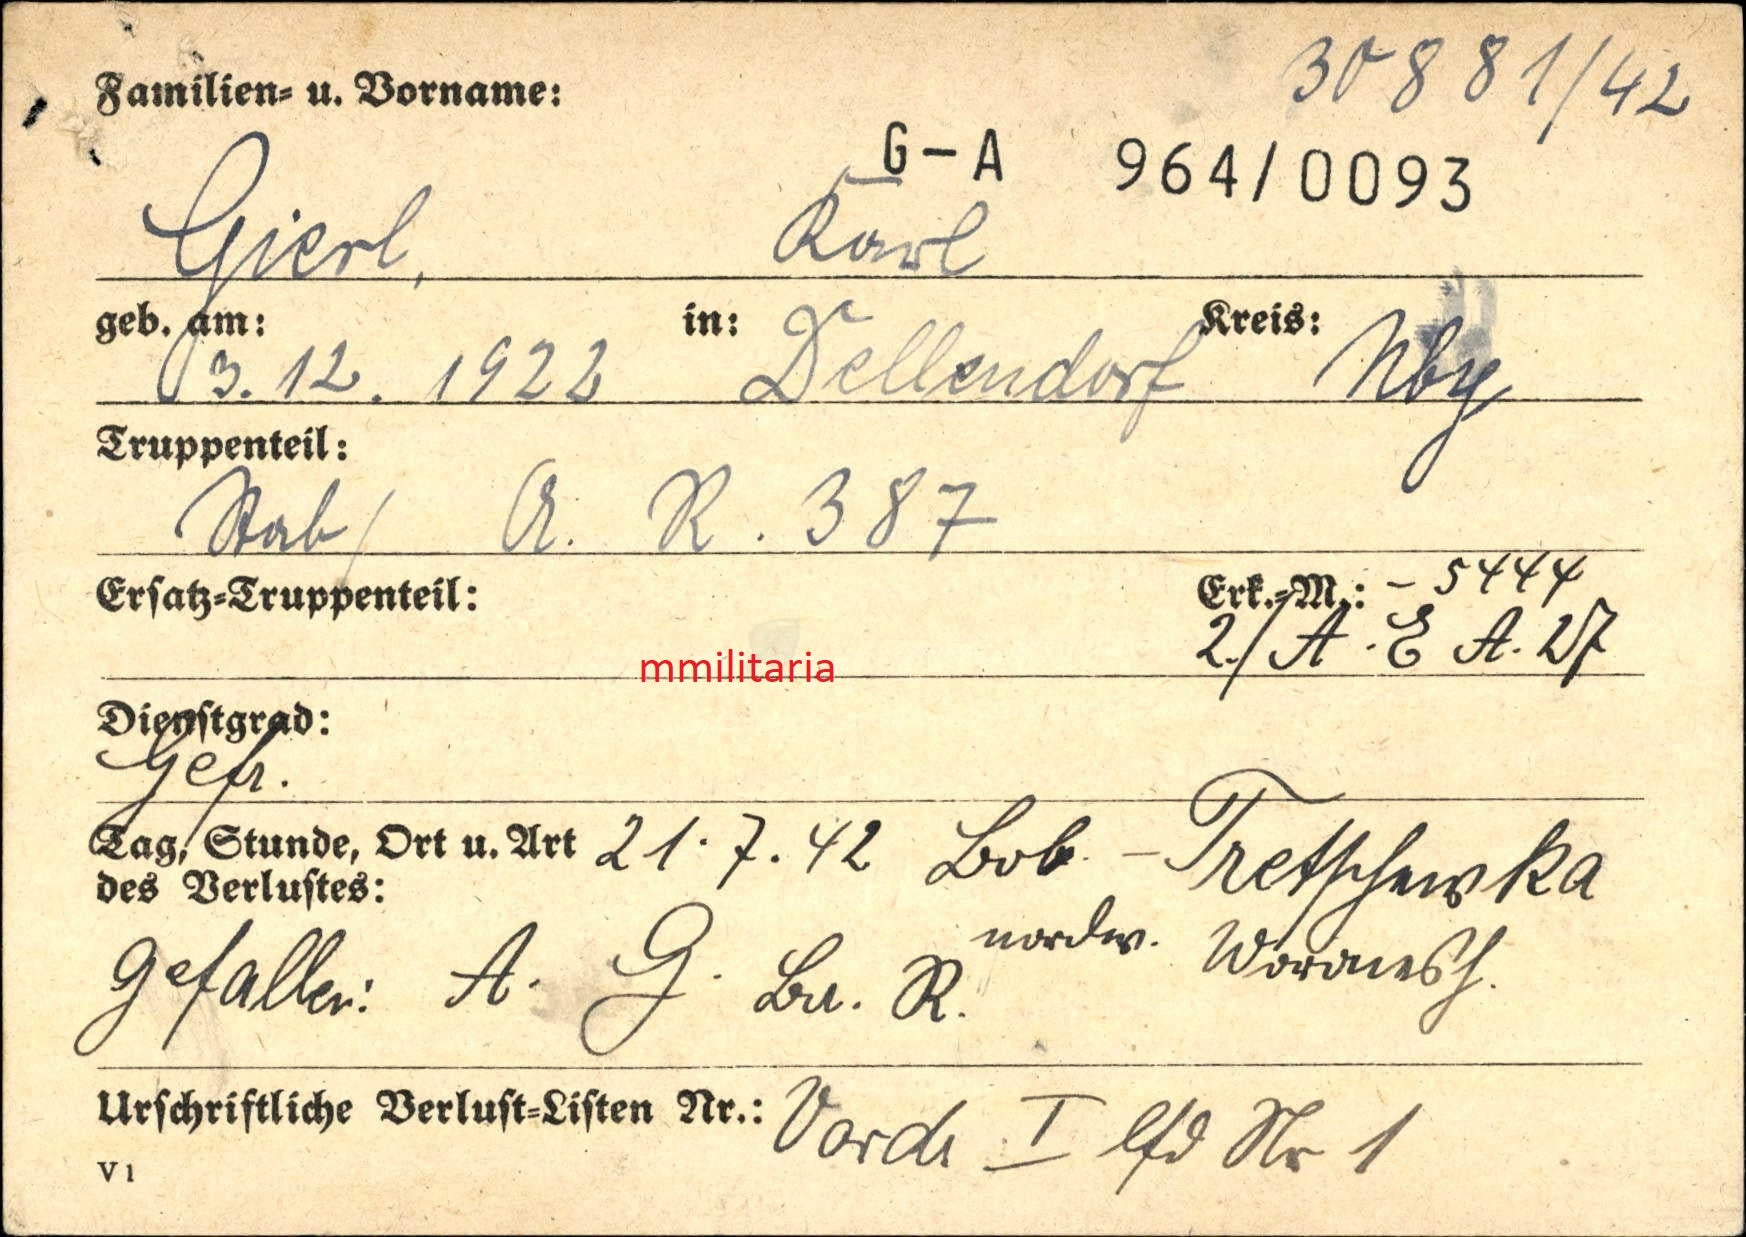 30881/42
Familien- u. Vorname:
G-A 964/0093
Gierl, Karl
geb. am: in: Kreis:
3.12.1922 Dellendorf Nbg
Truppenteil:
Stab/ A. R. 387
Ersatz-Truppenteil: Erk.-M.: - 5444
2./A. E A. 27
mmilitaria
Dienstgrad:
Gefr.
Tag, Stunde, Ort u. Art 21.7.42 Bob. - Tretschewka
des Verlustes:
nordw. Woronesh.
gefallen: A. G. Br. R.
Urschriftliche Verlust-Listen Nr.: Vordr I lfd Nr 1
V 1